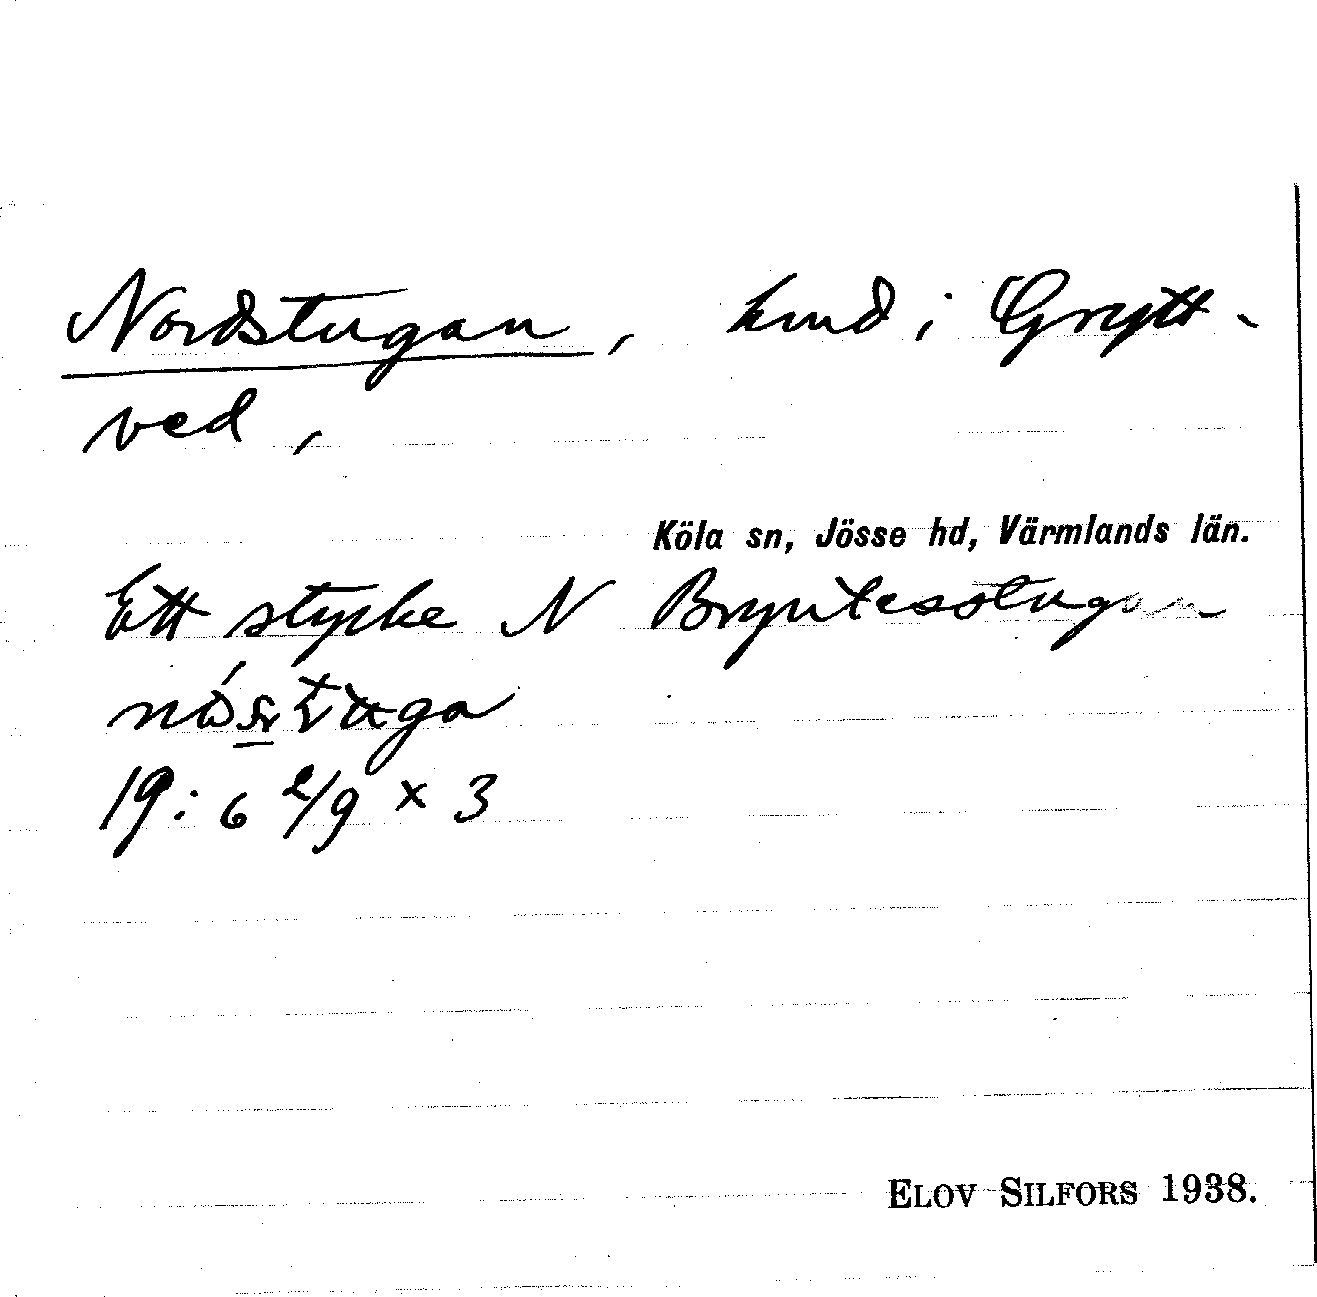 Nordstugan, hmd i Grytt-
ved,
Köla sn, Jösse hd, Värmlands län.
Ett stycke N Bryntesstugan
19: 6 e/9 × 3
ELOV SILFORS 1938.